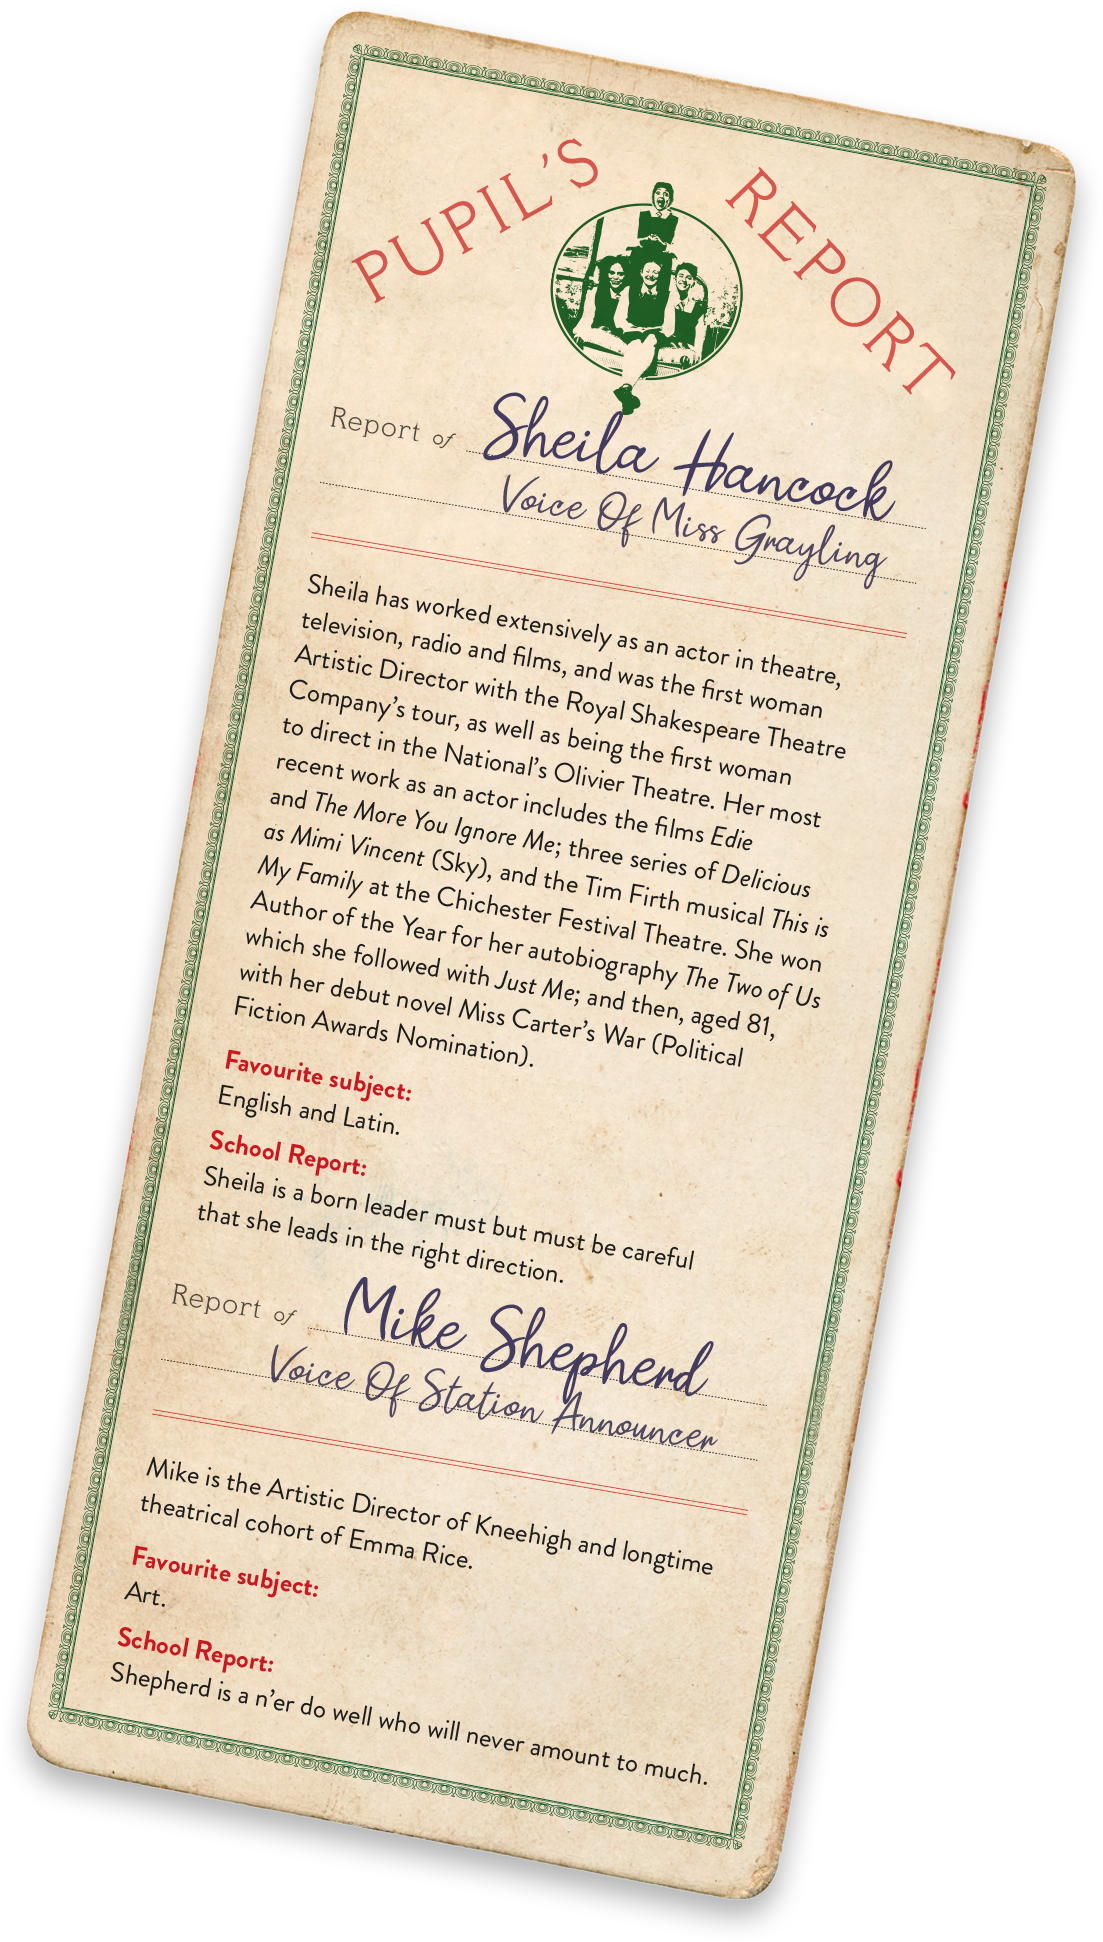 PUPIL'S REPORT
Report of Sheila Hancock
Voice Of Miss Grayling
Sheila has worked extensively as an actor in theatre,
television, radio and films, and was the first woman
Artistic Director with the Royal Shakespeare Theatre
Company's tour, as well as being the first woman
to direct in the National's Olivier Theatre. Her most
recent work as an actor includes the films Edie
and The More You Ignore Me; three series of Delicious
as Mimi Vincent (Sky), and the Tim Firth musical This is
My Family at the Chichester Festival Theatre. She won
Author of the Year for her autobiography The Two of Us
which she followed with Just Me; and then, aged 81,
with her debut novel Miss Carter's War (Political
Fiction Awards Nomination).
Favourite subject:
English and Latin.
School Report:
Sheila is a born leader must but must be careful
that she leads in the right direction.
Report of Mike Shepherd
Voice Of Station Announcer
Mike is the Artistic Director of Kneehigh and longtime
theatrical cohort of Emma Rice.
Favourite subject:
Art.
School Report:
Shepherd is a n'er do well who will never amount to much.